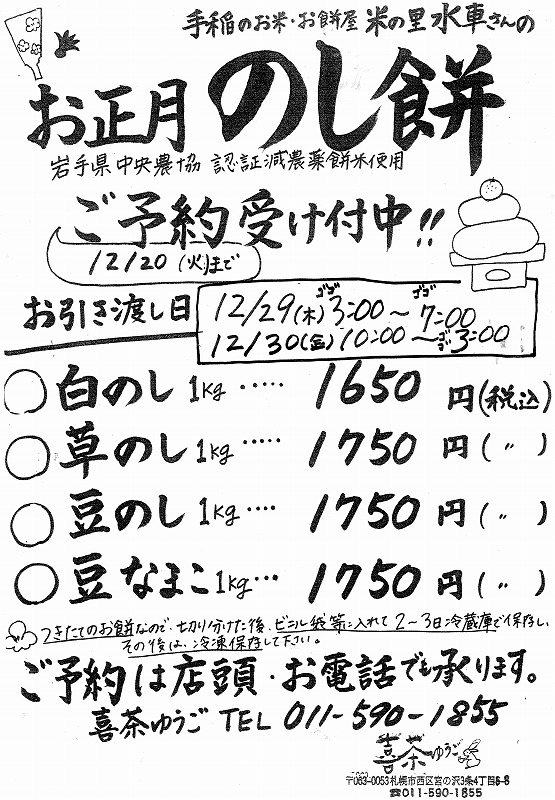 手稲のお米・お餅屋 米の里水車さんの
お正月 のし餅
岩手県中央農協 認証減農薬餅米使用
ご予約受け付中!!
12/20(火)まで
お引き渡し日
12/29(木)ゴゴ3:00〜ゴゴ7:00
12/30(金)10:00〜ゴゴ3:00
○白のし 1kg ‥‥‥ 1650円(税込)
○草のし 1kg ‥‥‥ 1750円(〃)
○豆のし 1kg ‥‥ 1750円(〃)
○豆なまこ 1kg‥・ 1750円(〃)
つきたてのお餅なので、切り分けた後、ビニル袋等に入れて2〜3日冷蔵庫で保存し、
その後は、冷凍保存して下さい。
ご予約は店頭・お電話でも承ります。
喜茶ゆうご TEL 011-590-1855
喜茶ゆうご
〒063-0053札幌市西区宮の沢3条4丁目6-8
☎011-590-1855